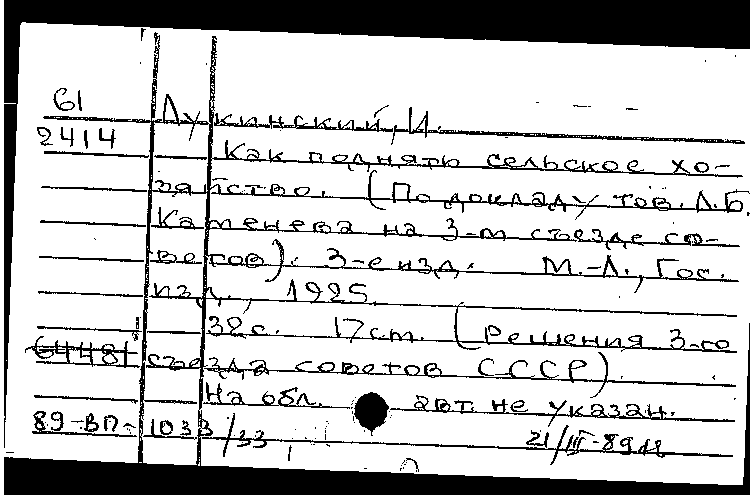 61
2414
Лукинский, И.
Как поднять сельское хо-
зяйство. (По докладу тов. Л.Б.
Каменева на 3-м съезде со-
ветов). 3-е изд. М.-Л., Гос.
изд., 1925.
32с. 17см. (Решения 3-го
64481 съезда советов СССР).
На обл. авт. не указан.
89-ВП-1033/33 21/III-89